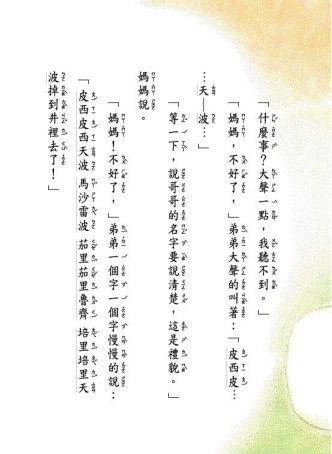 「什麼事？大聲一點，我聽不到。」
「媽媽，不好了，」弟弟大聲的叫著：「皮西皮…
…天—波…」
「等一下，說哥哥的名字要說清楚，這是禮貌。」
媽媽說。
「媽媽！不好了，」弟弟一個字一個字慢慢的說：
「皮西皮西天波 馬沙雷波 茄里茄里魯齊 培里天
波掉到井裡去了！」